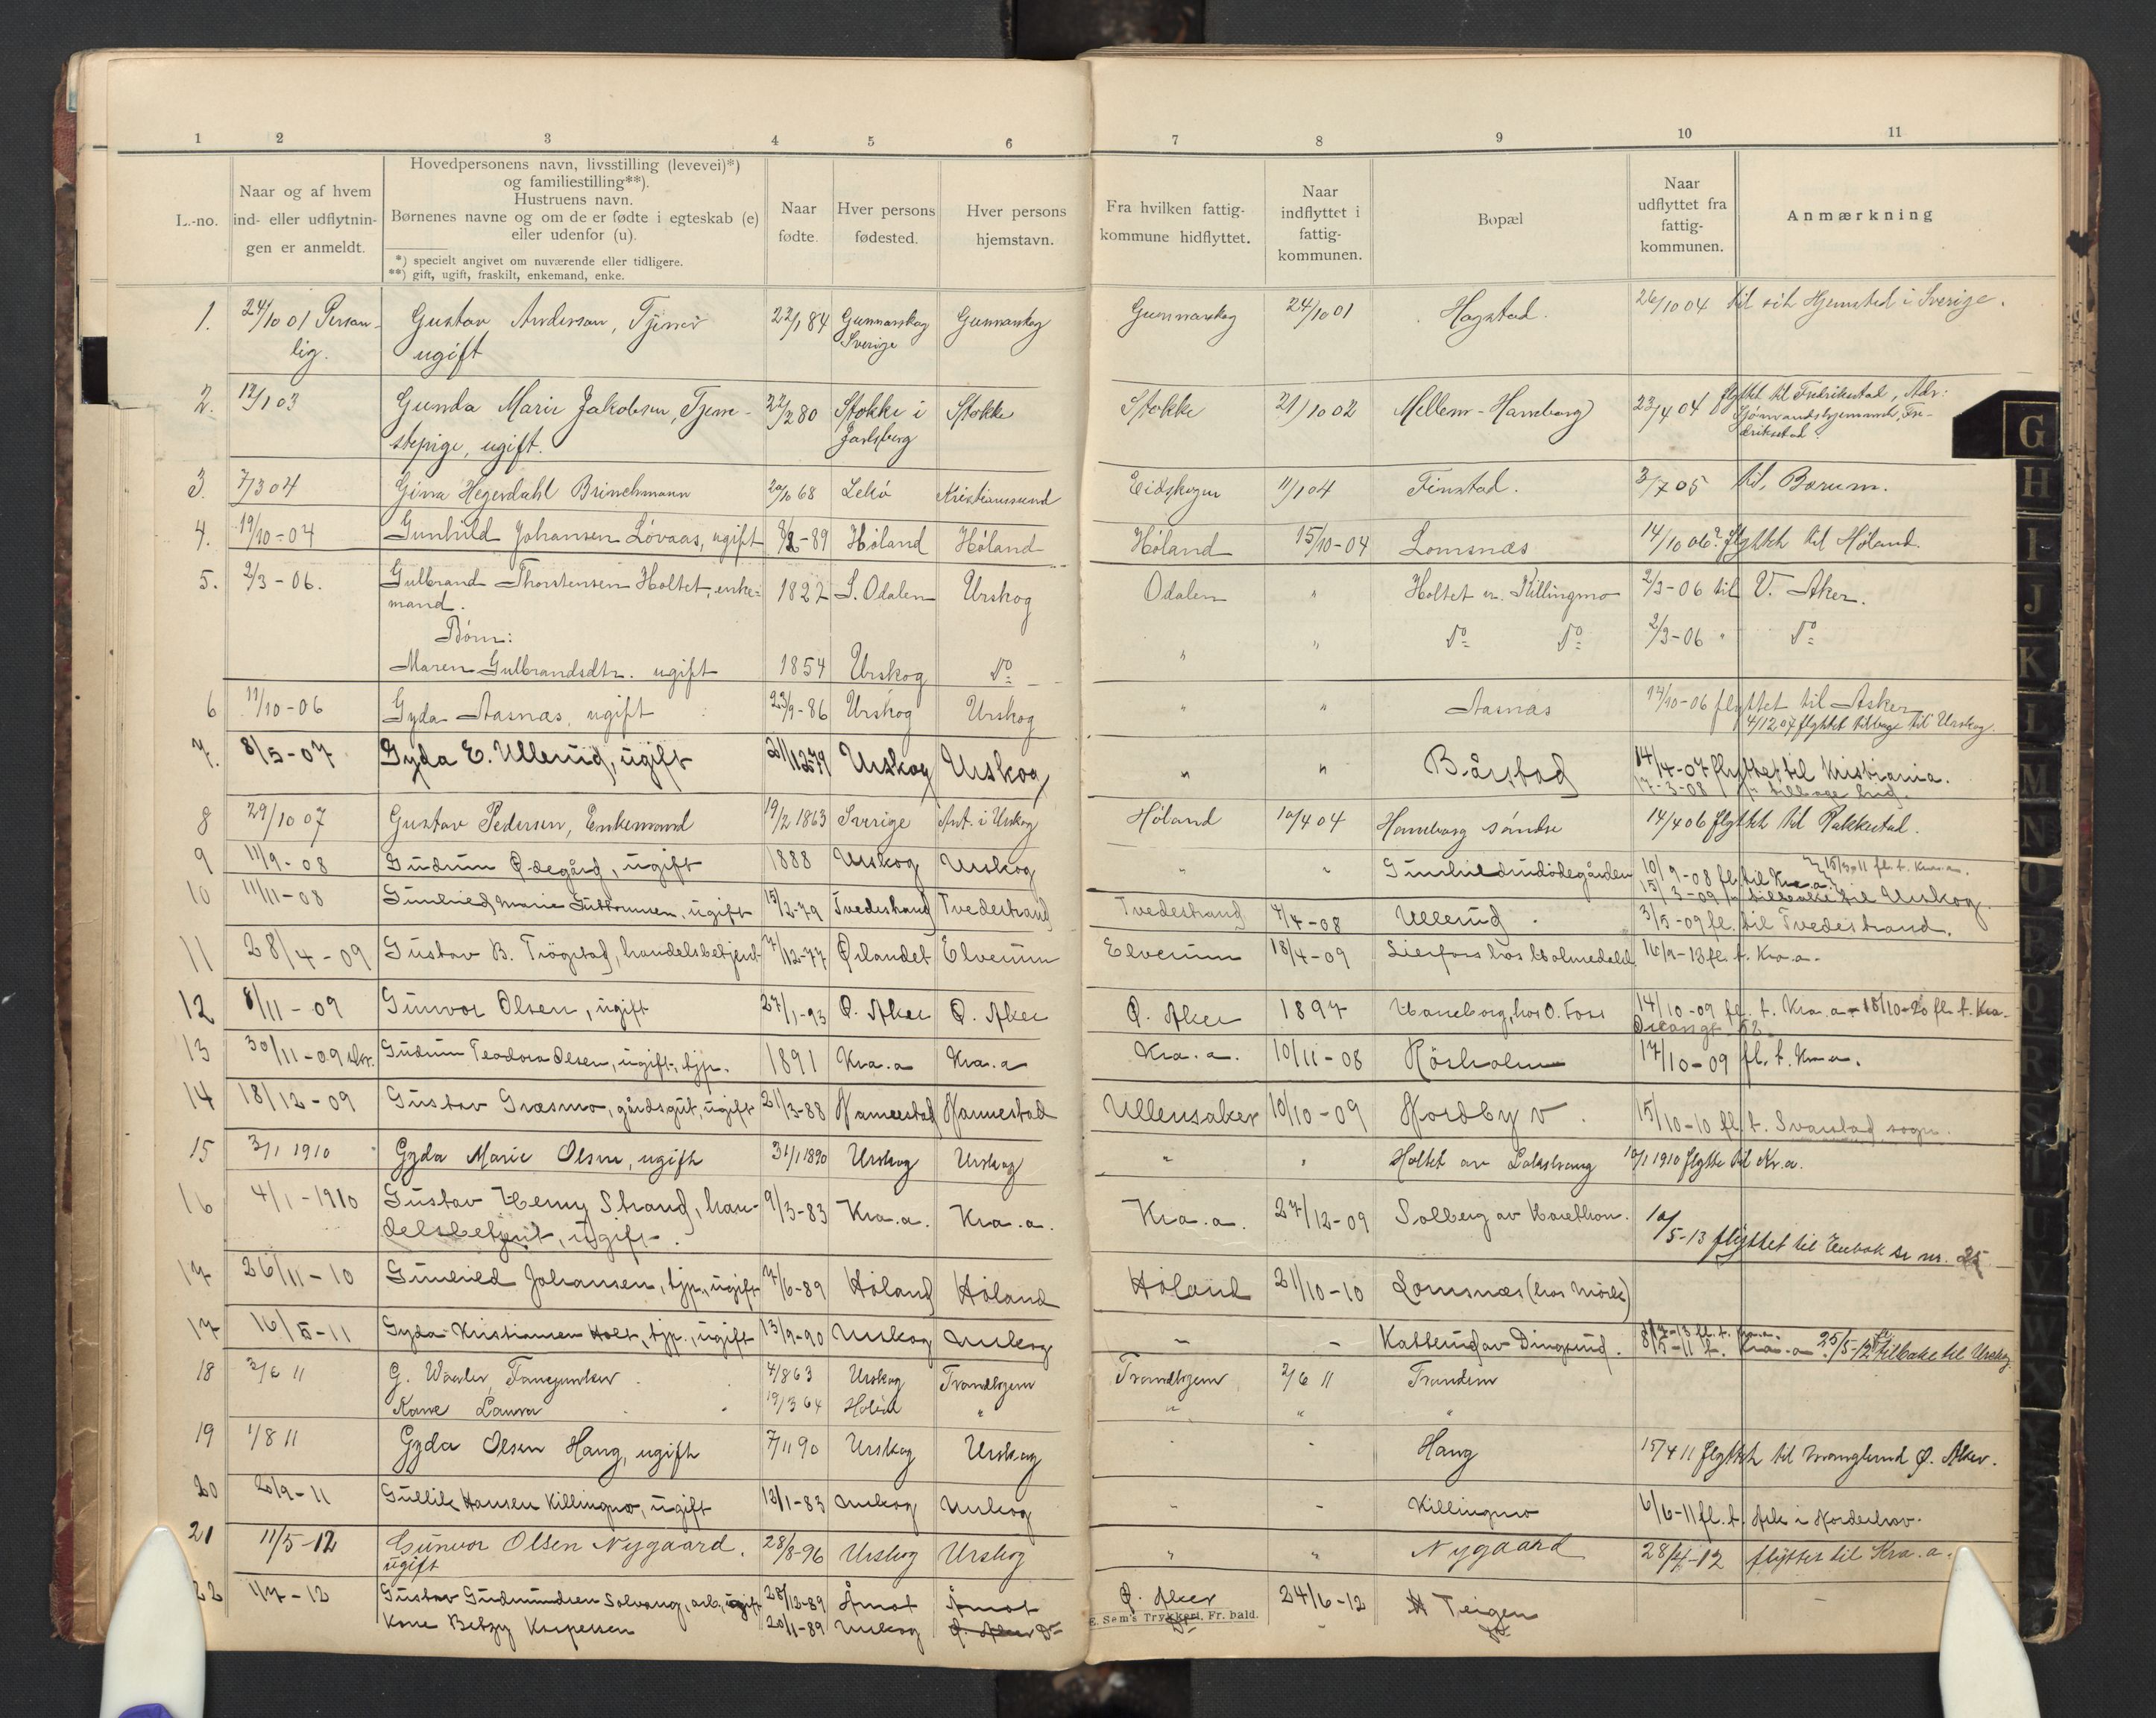 1 2 3 4 5 6 7 8 9 10 11
L.-no.
Naar og af hvem
ind- eller udflytnin-
gen er anmeldt.
Hovedpersonens navn, livsstilling (levevei)*)
og familiestilling**).
Hustruens navn.
Børnenes navne og om de er fødte i egteskab (e)
eller udenfor (u).
*) specielt angivet om nuværende eller tidligere.
**) gift, ugift, fraskilt, enkemand, enke.
Naar
fødte.
Hver persons
fødested.
Hver persons
hjemstavn.
Fra hvilken fattig-
kommune hidflyttet.
Naar
indflyttet i
fattig-
kommunen.
Bopæl
Naar
udflyttet fra
fattig-
kommunen.
Anmærkning
1. 24/10 01 Person- Gustav Anderson, Tjener 22/1 84 Gunnarskog Gunnarskog Gunnarskog 24/10 01 Hogstad. 26/10 04 til sit Hjemsted i Sverige.
lig. ugift Sverige
2. 12/1 03 Gunda Marie Jakobsen, Tjene- 22/2 80 Stokke i Stokke Stokke 21/10 02 Mellem-Haneborg 23/4 04 flyttet til Fredrikstad, Adr:
stepige, ugift. Jarlsberg Sjømandshjemmet, Fre-
drikstad.
3. 7/3 04 Gina Hegerdahl Brinchmann 20/10 68 Lekø Kristianssund Eidskogen 11/1 04 Finstad. 3/7 05 til Bærum.
4. 19/10-04 Gunhild Johansen Løvaas, ugift 8/2-89 Høland Høland Høland 15/10-04 Lomsnæs 14/10 06? flyttet til Høland.
5. 2/3-06. Gulbrand Thorstensen Holtet, enke- 1827 S. Odalen Urskog Odalen " Holtet u. Killingmo 2/3-06 til V. Aker.
mand.
Børn: " " Do Do 2/3-06 " Do
Maren Gulbrandsdtr. ugift 1854 Urskog Do
6 11/10-06 Gyda Aasnæs, ugift 23/9-86 Urskog Urskog " " Aasnæs 14/10-06 flyttet til Asker
4/12 07 flyttet tilbage til Urskog.
7. 8/5-07 Gyda E. Ullerud, ugift 21/12-79 Urskog Urskog " " Bårstad 14/4-07 flyttet til Kristiania.
17-3-08 fl. tilbage hid.
8 29/10 07 Gustav Pedersen, Enkemand 19/2 1863 Sverige Ant. i Urskog Høland 10/4 04 Haneborg søndre 14/4 06 flyttet til Rakkestad.
9 11/9-08 Gudrun Ødegård, ugift 1888 Urskog Urskog " " Gunhildsrudødegården 10/9-08 fl. til Kra.a. 15/3-11 fl. t. Kra.a.
15/3-09 fl. tilbake til Urskog.
10 11/11-08 Gunhild Marie Guttormsen, ugift 15/2-79 Tvedestrand Tvedestrand Tvedestrand 4/4-08 Ullerud. 3/5-09 fl. til Tvedestrand.
11 28/4-09 Gustav B. Trøgstad, handelsbetjent 7/12-77 Ørlandet Elverum Elverum 18/4-09 Lierfoss hos Holmedahl 16/9-13 fl. t. Kra.a.
12 8/11-09 Gunvor Olsen, ugift 27/1-93 Ø. Aker Ø. Aker Ø. Aker 1897 Haneborg, hos O. Foss 14/10-09 fl. t. Kra.a - 18/10-20 fl. t. Kra.
13 30/11-09 skr. Gudrun Teodora Olsen, ugift, tjp. 1891 Kra.a Kra.a Kra.a. 10/11-08 Rösholm 17/10-09 fl. t. Kra.a.
14 18/12-09 Gustav Græsmo, gårdsgut, ugift 21/3-88 Hannestad Hannestad Ullensaker 10/10-09 Nordby V. 15/10-10 fl. t. Svarstad sogn.
15 3/1 1910 Gyda Marie Olsen, ugift 31/1 1890 Urskog Urskog " " Holtet av Lakstvang 10/1 1910 flytte til Kr.a.
16 4/1-1910 Gustav Henry Strand, han- 9/3-83 Kra.a. Kra.a. Kra.a. 27/12-09 Solberg av Harethon.
delsbetjent, ugift. 10/5-13 flyttet til Enebak se nr. 25
17 26/11-10 Gunhild Johansen, tjp., ugift 7/6-89 Høland Høland Høland 21/10-10 Lomsnæs (hos Mörk)
17 16/5-11 Gyda Kristiansen Holt, tjp., ugift 13/9-90 Urskog Urskog " - Katterud av Dingsrud. 8/5-11 t. Kra.a 25/5-12 fl. tilbake til Urskog
18 2/6 11 G. Waaler, Fanejunker 4/8 63 Urskog Trondhjem Trondhjem 2/6 11 Trandem
Kone Laura 19/3 64 Høland " " " "
19 1/8 11 Gyda Olsen Haug, ugift 7/11 90 Urskog Urskog - - Haug 15/4 11 flyttet til Vranglund Ø. Aker.
20 20/9-11 Gullik Hansen Killingmo, ugift 12/1-83 Urskog Urskog - - Killingmo 6/6-11 fl. t. Ask i Norderhov.
21 11/5-12 Gunvor Olsen Nygaard. 28/8-96 Urskog Urskog " " Nygaard 28/4-12 flyttet til Kra.a.
ugift
22 1/7-12 Gustav Gudmundsen Solvang, arb., ugift 28/12-89 Åmot Åmot Ø. Aker 24/6-12 Teigen
Kone Betzy Kaspersen 20/1-89 Urskog Ø. Aker Do
E. Sem's Trykkeri, Fr. hald.
G
H
I
J
K
L
M
N
O
P
Q
R
S
T
U
V
W
X
Y
Z
Æ
Ø